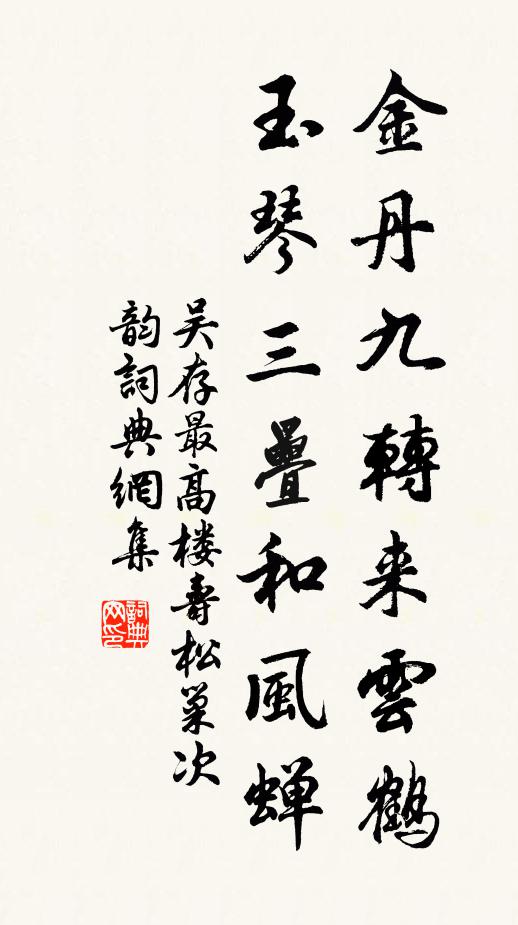 金丹九轉来雲鶴
玉琴三疊和風蝉
吴存最高楼壽松巢次
韵詞典網集
詞典网印